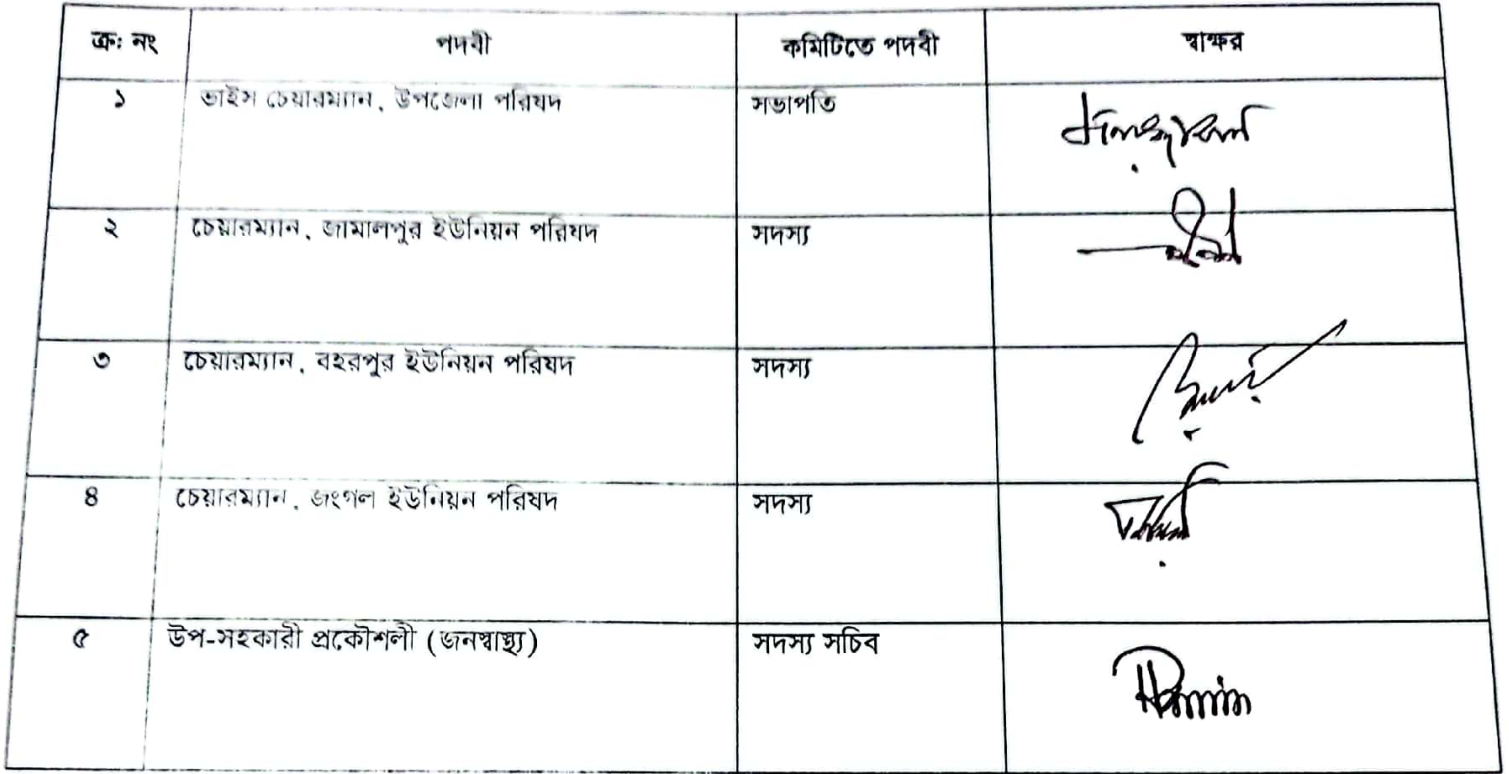 ক্রঃ নং পদবী কমিটিতে পদবী স্বাক্ষর
১ ভাইস চেয়ারম্যান, উপজেলা পরিষদ সভাপতি
২ চেয়ারম্যান, জামালপুর ইউনিয়ন পরিষদ সদস্য
৩ চেয়ারম্যান, বহরপুর ইউনিয়ন পরিষদ সদস্য
৪ চেয়ারম্যান, জংগল ইউনিয়ন পরিষদ সদস্য
৫ উপ-সহকারী প্রকৌশলী (জনস্বাস্থ্য) সদস্য সচিব